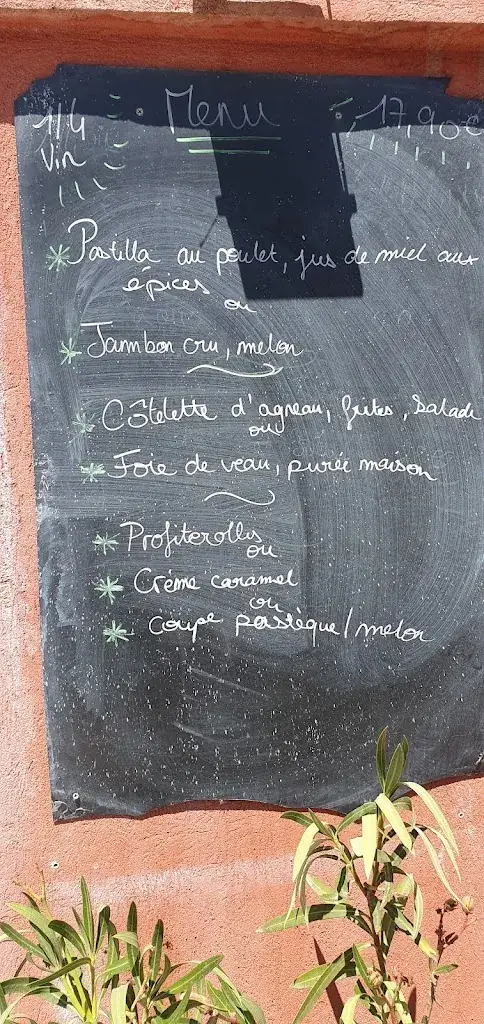 1/4 Menu 17,90€
Vin
* Pastilla au poulet, jus de miel aux
épices
ou
* Jambon cru, melon
* Côtelette d'agneau, frites, salade
ou
* Foie de veau, purée maison
* Profiterolles
ou
* Crème caramel
ou
* coupe pastèque/melon